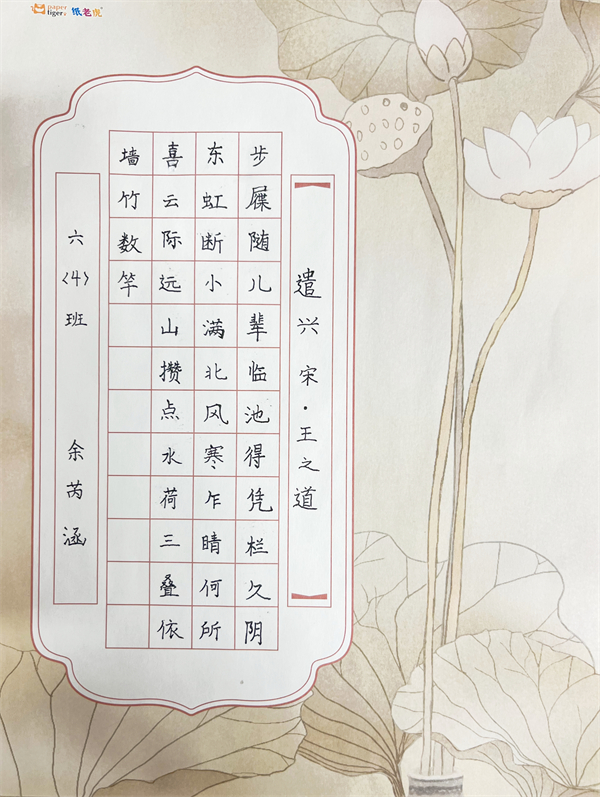 paper
tiger
纸老虎
遣兴 宋·王之道
步屧随儿辈临池得凭栏久阴
东虹断小满北风寒乍晴何所
喜云际远山攒点水荷三叠依
墙竹数竿
六〈4〉班 余芮涵